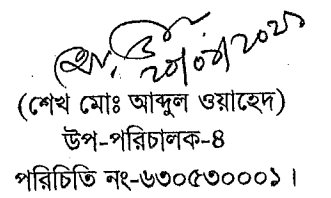 (শেখ মোঃ আব্দুল ওয়াহেদ)
উপ-পরিচালক-৪
পরিচিতি নং-৬৩০৫৩০০০১।